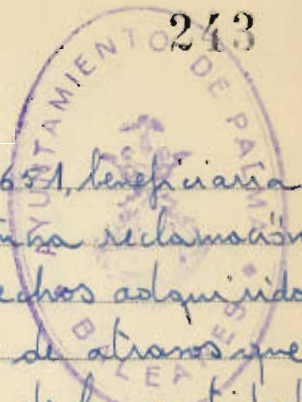 243
AYUNTAMIENTO DE PALMA
BALEARES
651, beneficiaria
reclamación
echos adquirido
de atrasos que